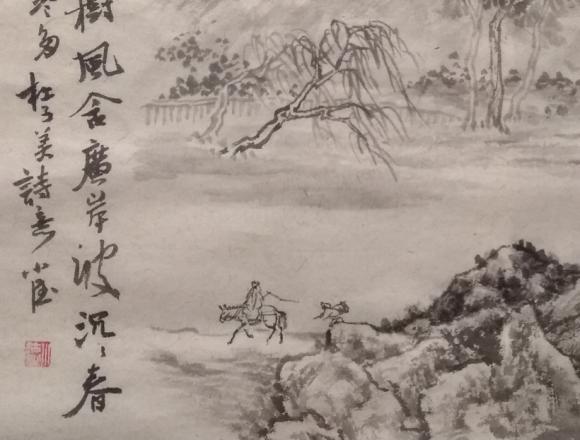 樹風含廣岸波沉〻春
杜子美詩意